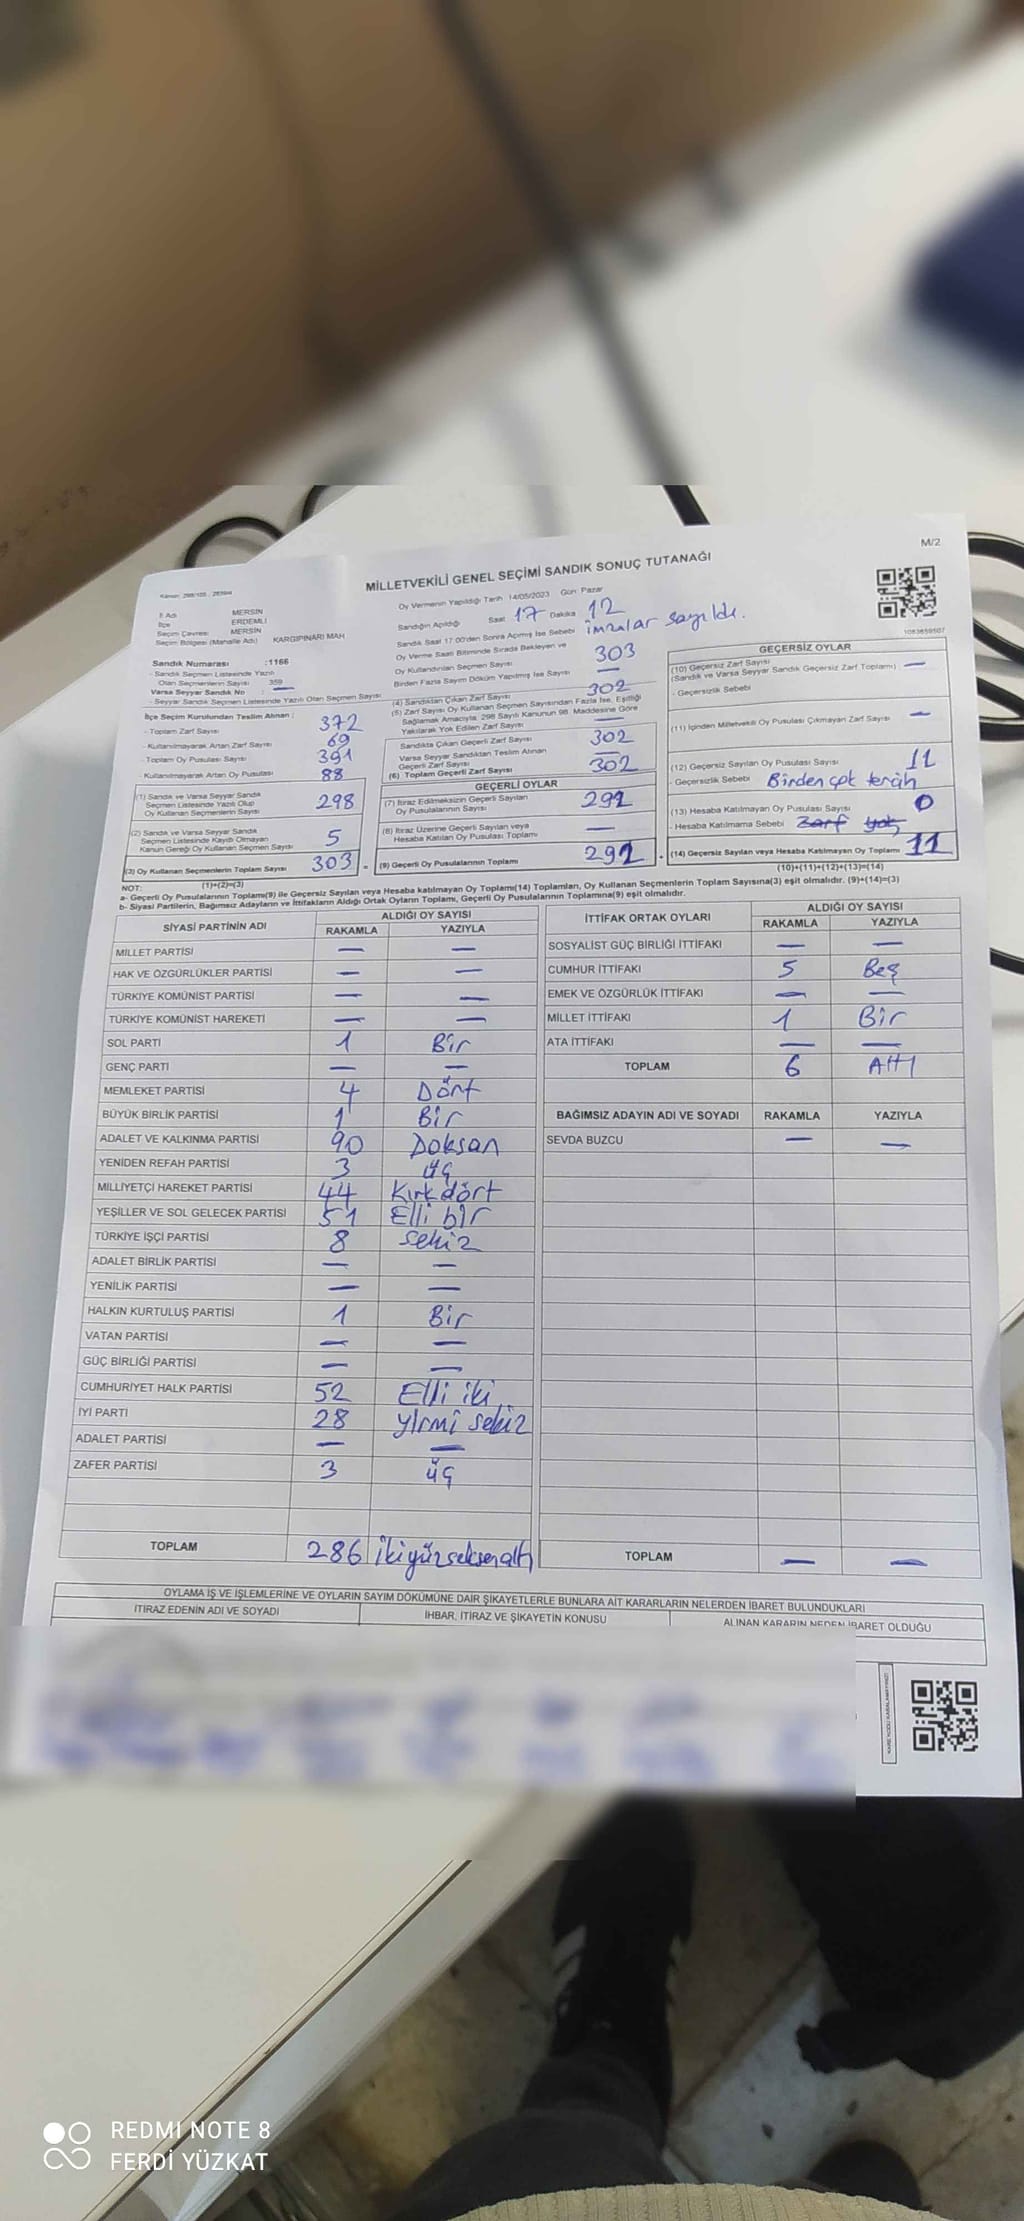 M/2
MİLLETVEKİLİ GENEL SEÇİMİ SANDIK SONUÇ TUTANAĞI
İl Adı MERSİN
İlçe ERDEMLİ
Seçim Çevresi MERSİN
Seçim Bölgesi (Mahalle Adı) KARGIPINARI MAH
Sandık Numarası :1166
- Sandık Seçmen Listesinde Yazılı
Olan Seçmenlerin Sayısı 359
Varsa Seyyar Sandık No : —
- Seyyar Sandık Seçmen Listesinde Yazılı Olan Seçmen Sayısı
Oy Vermenin Yapıldığı Tarih 14/05/2023 Gün: Pazar
Sandığın Açıldığı Saat 17 Dakika 12
Sandık Saat 17:00'den Sonra Açılmış İse Sebebi imzalar sayıldı.
Oy Verme Saati Bitiminde Sırada Bekleyen ve
Oy Kullandırılan Seçmen Sayısı 303
Birden Fazla Sayım Döküm Yapılmış İse Sayısı —
1083659507
İlçe Seçim Kurulundan Teslim Alınan :
- Toplam Zarf Sayısı 372
- Kullanılmayarak Artan Zarf Sayısı 69
- Toplam Oy Pusulası Sayısı 391
- Kullanılmayarak Artan Oy Pusulası 88
(1) Sandık ve Varsa Seyyar Sandık
Seçmen Listesinde Yazılı Olup
Oy Kullanan Seçmenlerin Sayısı 298
(2) Sandık ve Varsa Seyyar Sandık
Seçmen Listesinde Kayıtlı Olmayan
Kanun Gereği Oy Kullanan Seçmen Sayısı 5
(3) Oy Kullanan Seçmenlerin Toplam Sayısı 303
(1)+(2)=(3)
(4) Sandıktan Çıkan Zarf Sayısı 302
(5) Zarf Sayısı Oy Kullanan Seçmen Sayısından Fazla İse, Eşitliği
Sağlamak Amacıyla 298 Sayılı Kanunun 98. Maddesine Göre
Yakılarak Yok Edilen Zarf Sayısı —
Sandıkta Çıkan Geçerli Zarf Sayısı 302
Varsa Seyyar Sandıktan Teslim Alınan
Geçerli Zarf Sayısı —
(6) Toplam Geçerli Zarf Sayısı 302
GEÇERLİ OYLAR
(7) İtiraz Edilmeksizin Geçerli Sayılan
Oy Pusulalarının Sayısı 292
(8) İtiraz Üzerine Geçerli Sayılan veya
Hesaba Katılan Oy Pusulası Toplamı —
(9) Geçerli Oy Pusulalarının Toplamı 292
GEÇERSİZ OYLAR
(10) Geçersiz Zarf Sayısı
(Sandık ve Varsa Seyyar Sandık Geçersiz Zarf Toplamı) —
- Geçersizlik Sebebi
(11) İçinden Milletvekili Oy Pusulası Çıkmayan Zarf Sayısı —
(12) Geçersiz Sayılan Oy Pusulası Sayısı 11
- Geçersizlik Sebebi Birden çok tercih
(13) Hesaba Katılmayan Oy Pusulası Sayısı 0
- Hesaba Katılmama Sebebi Zarf yok
(14) Geçersiz Sayılan veya Hesaba Katılmayan Oy Toplamı 11
(10)+(11)+(12)+(13)=(14)
NOT:
a- Geçerli Oy Pusulalarının Toplamı(9) ile Geçersiz Sayılan veya Hesaba katılmayan Oy Toplamı(14) Toplamları, Oy Kullanan Seçmenlerin Toplam Sayısına(3) eşit olmalıdır. (9)+(14)=(3)
b- Siyasi Partilerin, Bağımsız Adayların ve İttifakların Aldığı Ortak Oyların Toplamı, Geçerli Oy Pusulalarının Toplamına(9) eşit olmalıdır.
SİYASİ PARTİNİN ADI ALDIĞI OY SAYISI
RAKAMLA YAZIYLA
MİLLET PARTİSİ — —
HAK VE ÖZGÜRLÜKLER PARTİSİ — —
TÜRKİYE KOMÜNİST PARTİSİ — —
TÜRKİYE KOMÜNİST HAREKETİ — —
SOL PARTİ 1 Bir
GENÇ PARTİ — —
MEMLEKET PARTİSİ 4 Dört
BÜYÜK BİRLİK PARTİSİ 1 Bir
ADALET VE KALKINMA PARTİSİ 90 Doksan
YENİDEN REFAH PARTİSİ 3 üç
MİLLİYETÇİ HAREKET PARTİSİ 44 Kırk dört
YEŞİLLER VE SOL GELECEK PARTİSİ 51 Elli bir
TÜRKİYE İŞÇİ PARTİSİ 8 sekiz
ADALET BİRLİK PARTİSİ — —
YENİLİK PARTİSİ — —
HALKIN KURTULUŞ PARTİSİ 1 Bir
VATAN PARTİSİ — —
GÜÇ BİRLİĞİ PARTİSİ — —
CUMHURİYET HALK PARTİSİ 52 Elli iki
İYİ PARTİ 28 yirmi sekiz
ADALET PARTİSİ — —
ZAFER PARTİSİ 3 üç
TOPLAM 286 ikiyüzseksenaltı
İTTİFAK ORTAK OYLARI ALDIĞI OY SAYISI
RAKAMLA YAZIYLA
SOSYALİST GÜÇ BİRLİĞİ İTTİFAKI — —
CUMHUR İTTİFAKI 5 Beş
EMEK VE ÖZGÜRLÜK İTTİFAKI — —
MİLLET İTTİFAKI 1 Bir
ATA İTTİFAKI — —
TOPLAM 6 Altı
BAĞIMSIZ ADAYIN ADI VE SOYADI RAKAMLA YAZIYLA
SEVDA BUZCU — —
TOPLAM — —
OYLAMA İŞ VE İŞLEMLERİNE VE OYLARIN SAYIM DÖKÜMÜNE DAİR ŞİKAYETLERLE BUNLARA AİT KARARLARIN NELERDEN İBARET BULUNDUKLARI
İTİRAZ EDENİN ADI VE SOYADI İHBAR, İTİRAZ VE ŞİKAYETİN KONUSU ALINAN KARARIN NEDEN İBARET OLDUĞU
REDMI NOTE 8
FERDİ YÜZKAT